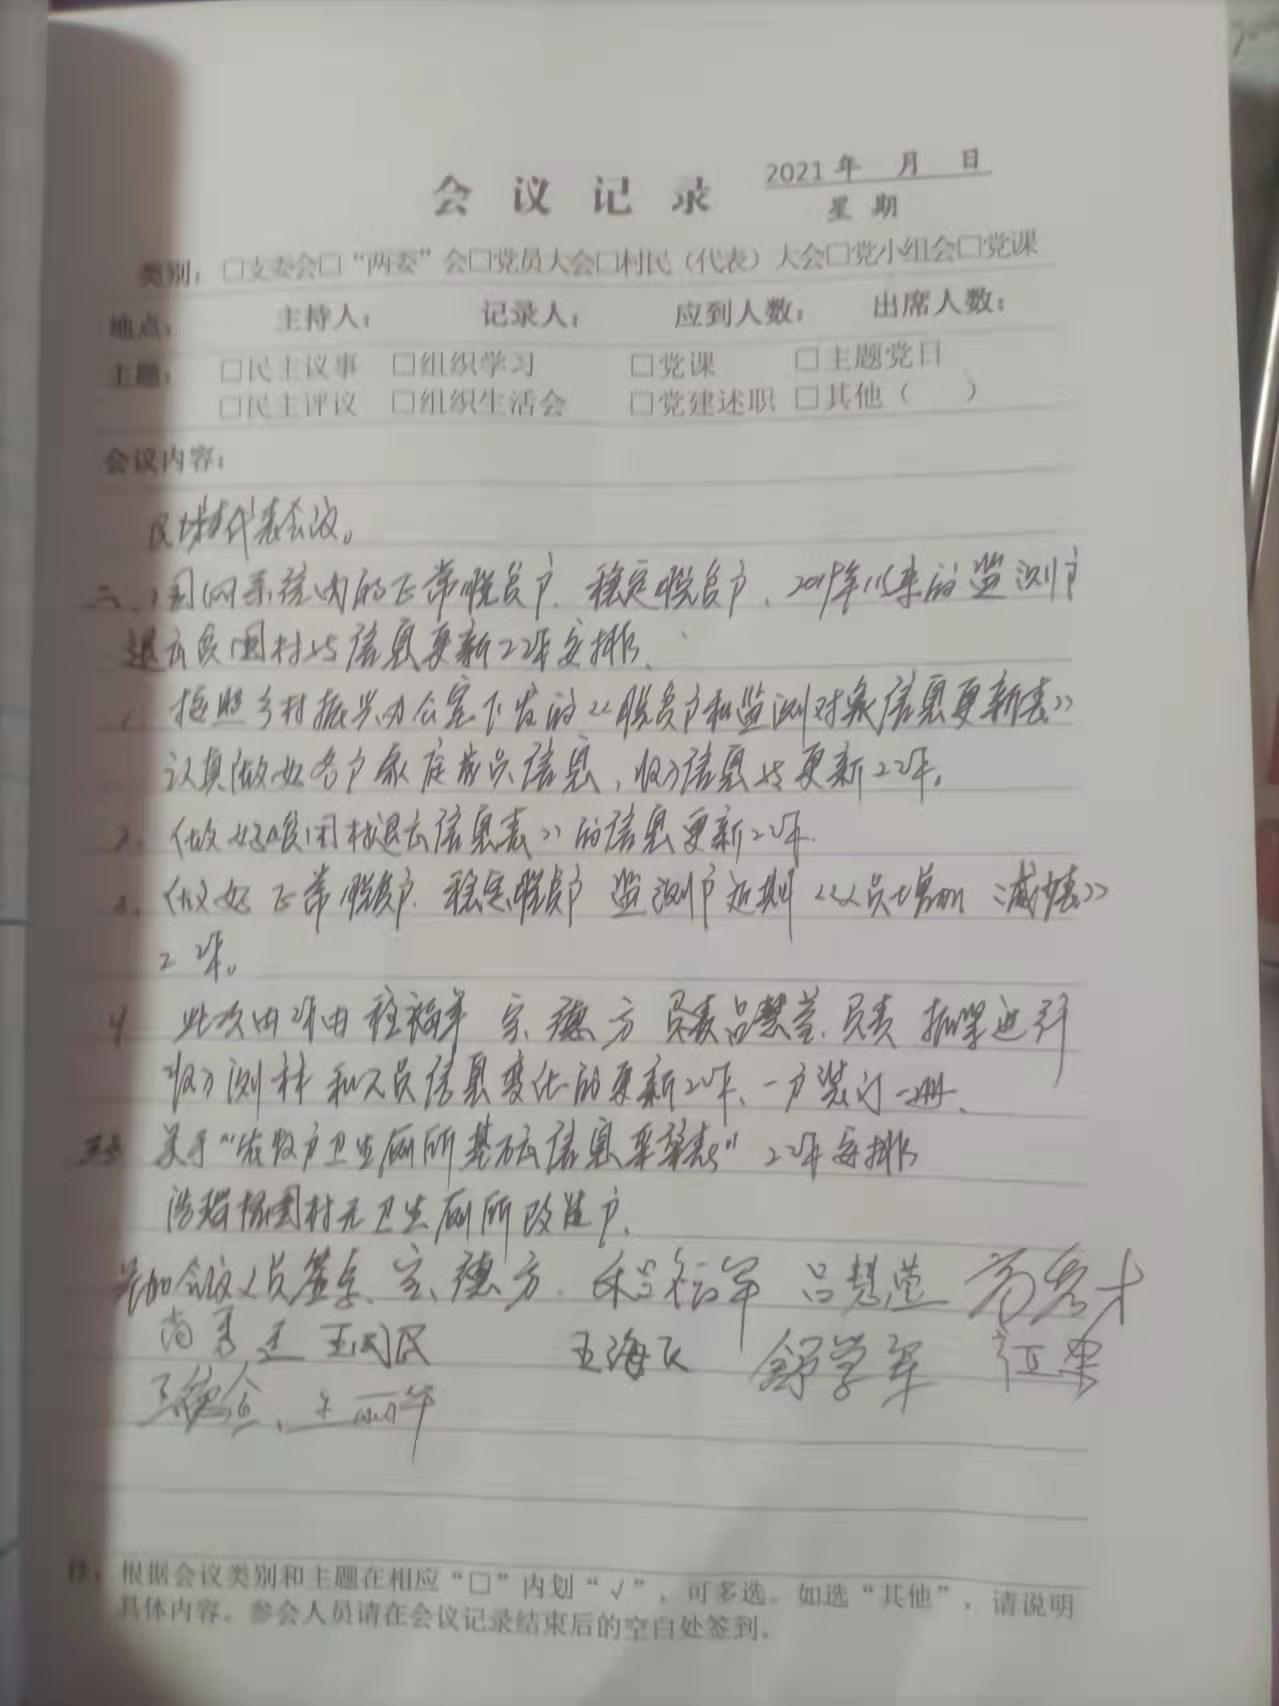 会 议 记 录
2021 年 月 日
星 期
类别：□支委会□“两委”会□党员大会□村民（代表）大会□党小组会□党课
地点： 主持人： 记录人： 应到人数： 出席人数：
主题： □民主议事 □组织学习 □党课 □主题党日
□民主评议 □组织生活会 □党建述职 □其他（ ）
会议内容：
代表会议。
二、国网系统内的正常脱贫户、稳定脱贫户、2019年以来的监测户
退出贫困村的信息更新工作安排、
1、按照乡村振兴办公室下发的《脱贫户和监测对象信息更新表》
认真做好各户家庭成员信息，收入信息的更新工作。
2、做好贫困村退出信息表》的信息更新工作.
3、做好正常脱贫户、稳定脱贫户 监测户近期《人员增加、减少表》
工作。
4、此次由 宗德方 负责吕慧莹、负责 进行
收入测 和人员信息变化的更新工作、一户装订一册、
三 关于“农牧户卫生厕所基础信息采集表”工作安排
村无卫生厕所改造户、
参加会议人员签字、宗德方、 吕慧莹 尚秀才
尚秀 王国民 王海 舒学军
王德 、
注：根据会议类别和主题在相应“□”内划“√”，可多选。如选“其他”，请说明
具体内容。参会人员请在会议记录结束后的空白处签到。